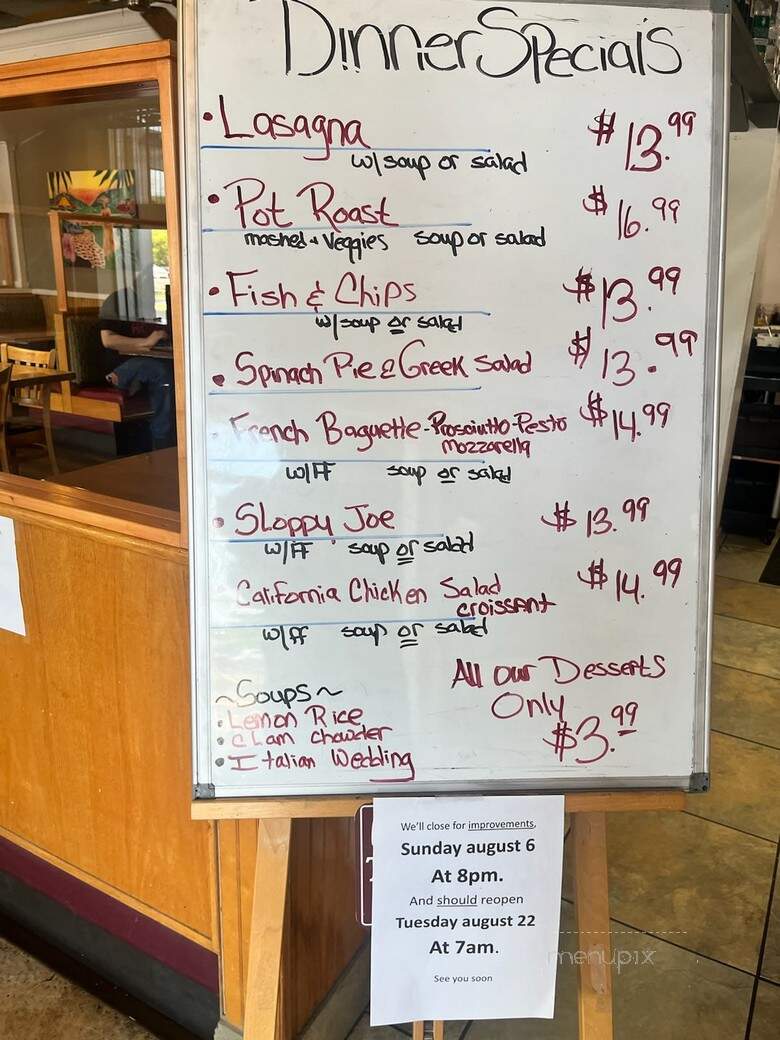 Dinner Specials
• Lasagna $13.99
w/soup or salad
• Pot Roast $16.99
mashed + Veggies soup or salad
• Fish & Chips $13.99
w/soup or salad
• Spinach Pie & Greek Salad $13.99
French Baguette-Prosciutto-Pesto $14.99
Mozzarella
w/FF soup or salad
• Sloppy Joe $13.99
w/FF soup or salad
California Chicken Salad $14.99
croissant
w/FF soup or salad
All our Desserts
Only
$3.99
~Soups~
• Lemon Rice
• Clam chowder
• Italian Wedding
We'll close for improvements,
Sunday august 6
At 8pm.
And should reopen
Tuesday august 22
At 7am.
See you soon
menupix